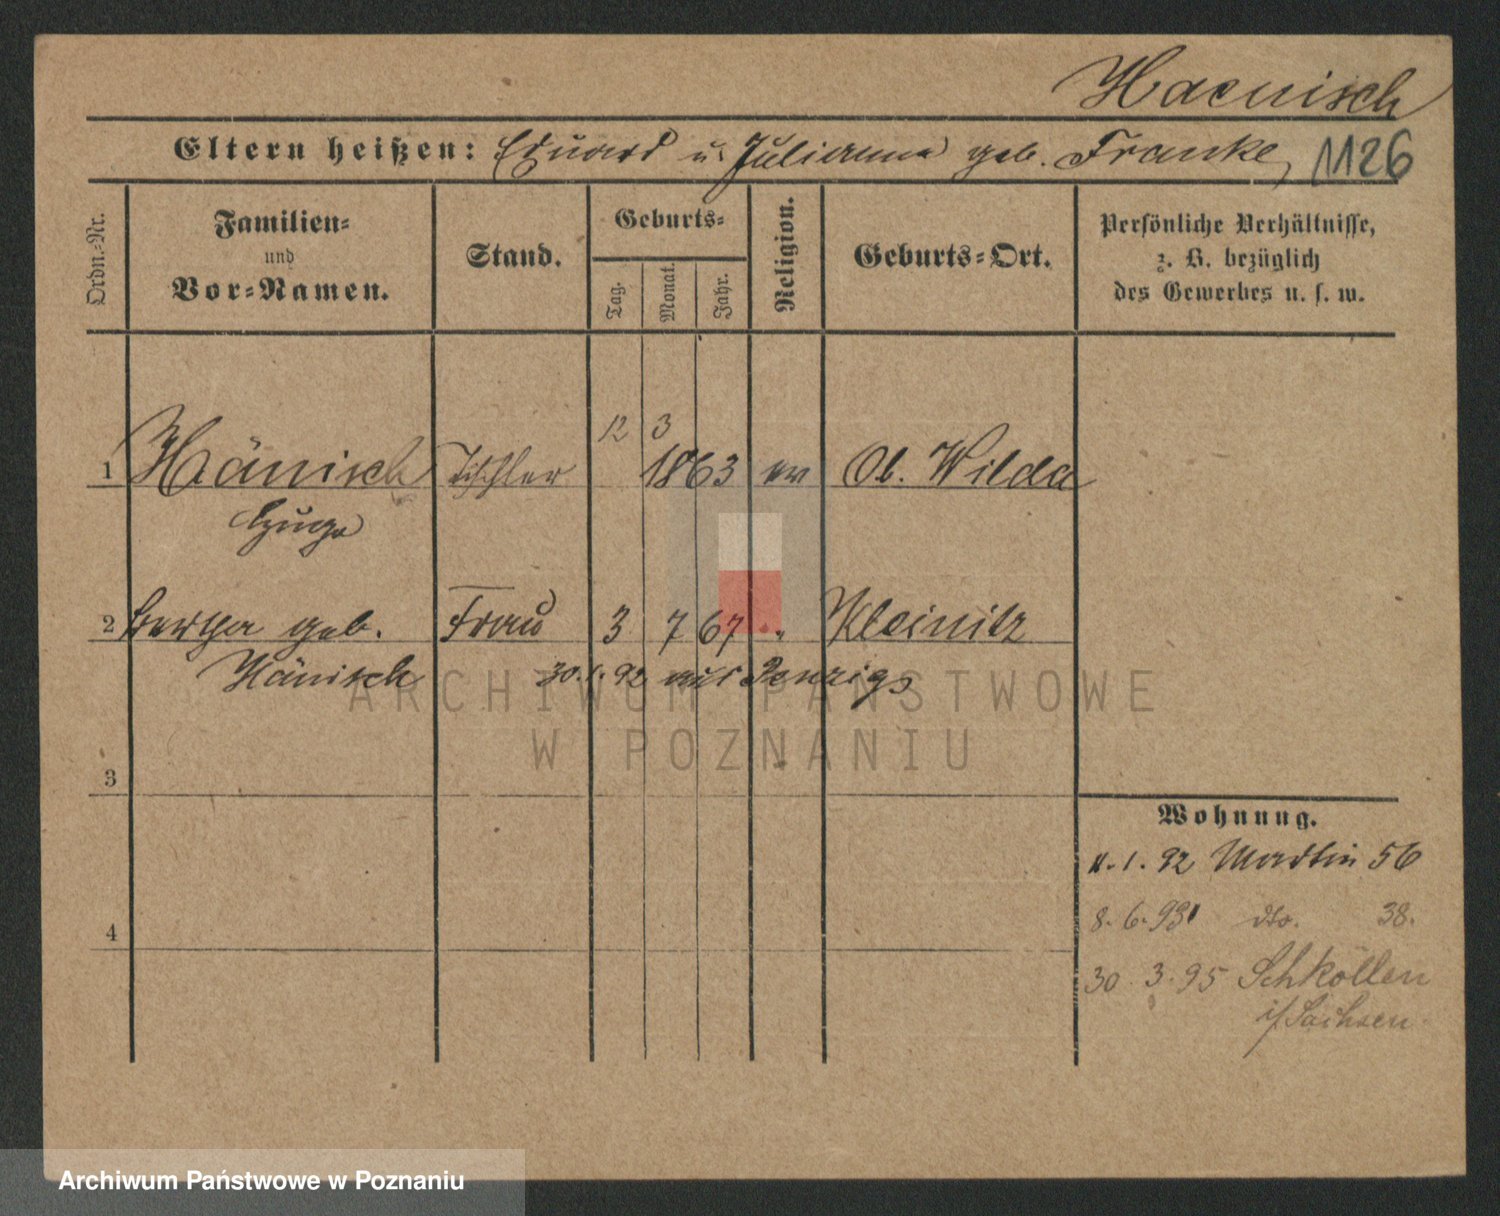 Haenisch
Eltern heißen: Eduard u. Julianna geb. Franke, 1126
Ordn.-Nr.
Familien-
und
Vor-Namen.
Stand.
Geburts-
Tag.
Monat.
Jahr.
Religion.
Geburts-Ort.
Persönliche Verhältnisse,
z. B. bezüglich
des Gewerbes u. s. w.
12 3
1 Hänisch Tischler 1863 ev Ob. Wilda
Hugo
2 Bertha geb. Frau 3 7 67 " Kleinitz
Hänisch 30.1.92 aus Penzig
3
4
Wohnung.
11.1.92 Martin 56
8.6.93 dto. 38.
30.3.95 Schkölen
i/Sachsen.
ARCHIWUM PAŃSTWOWE
W POZNANIU
Archiwum Państwowe w Poznaniu